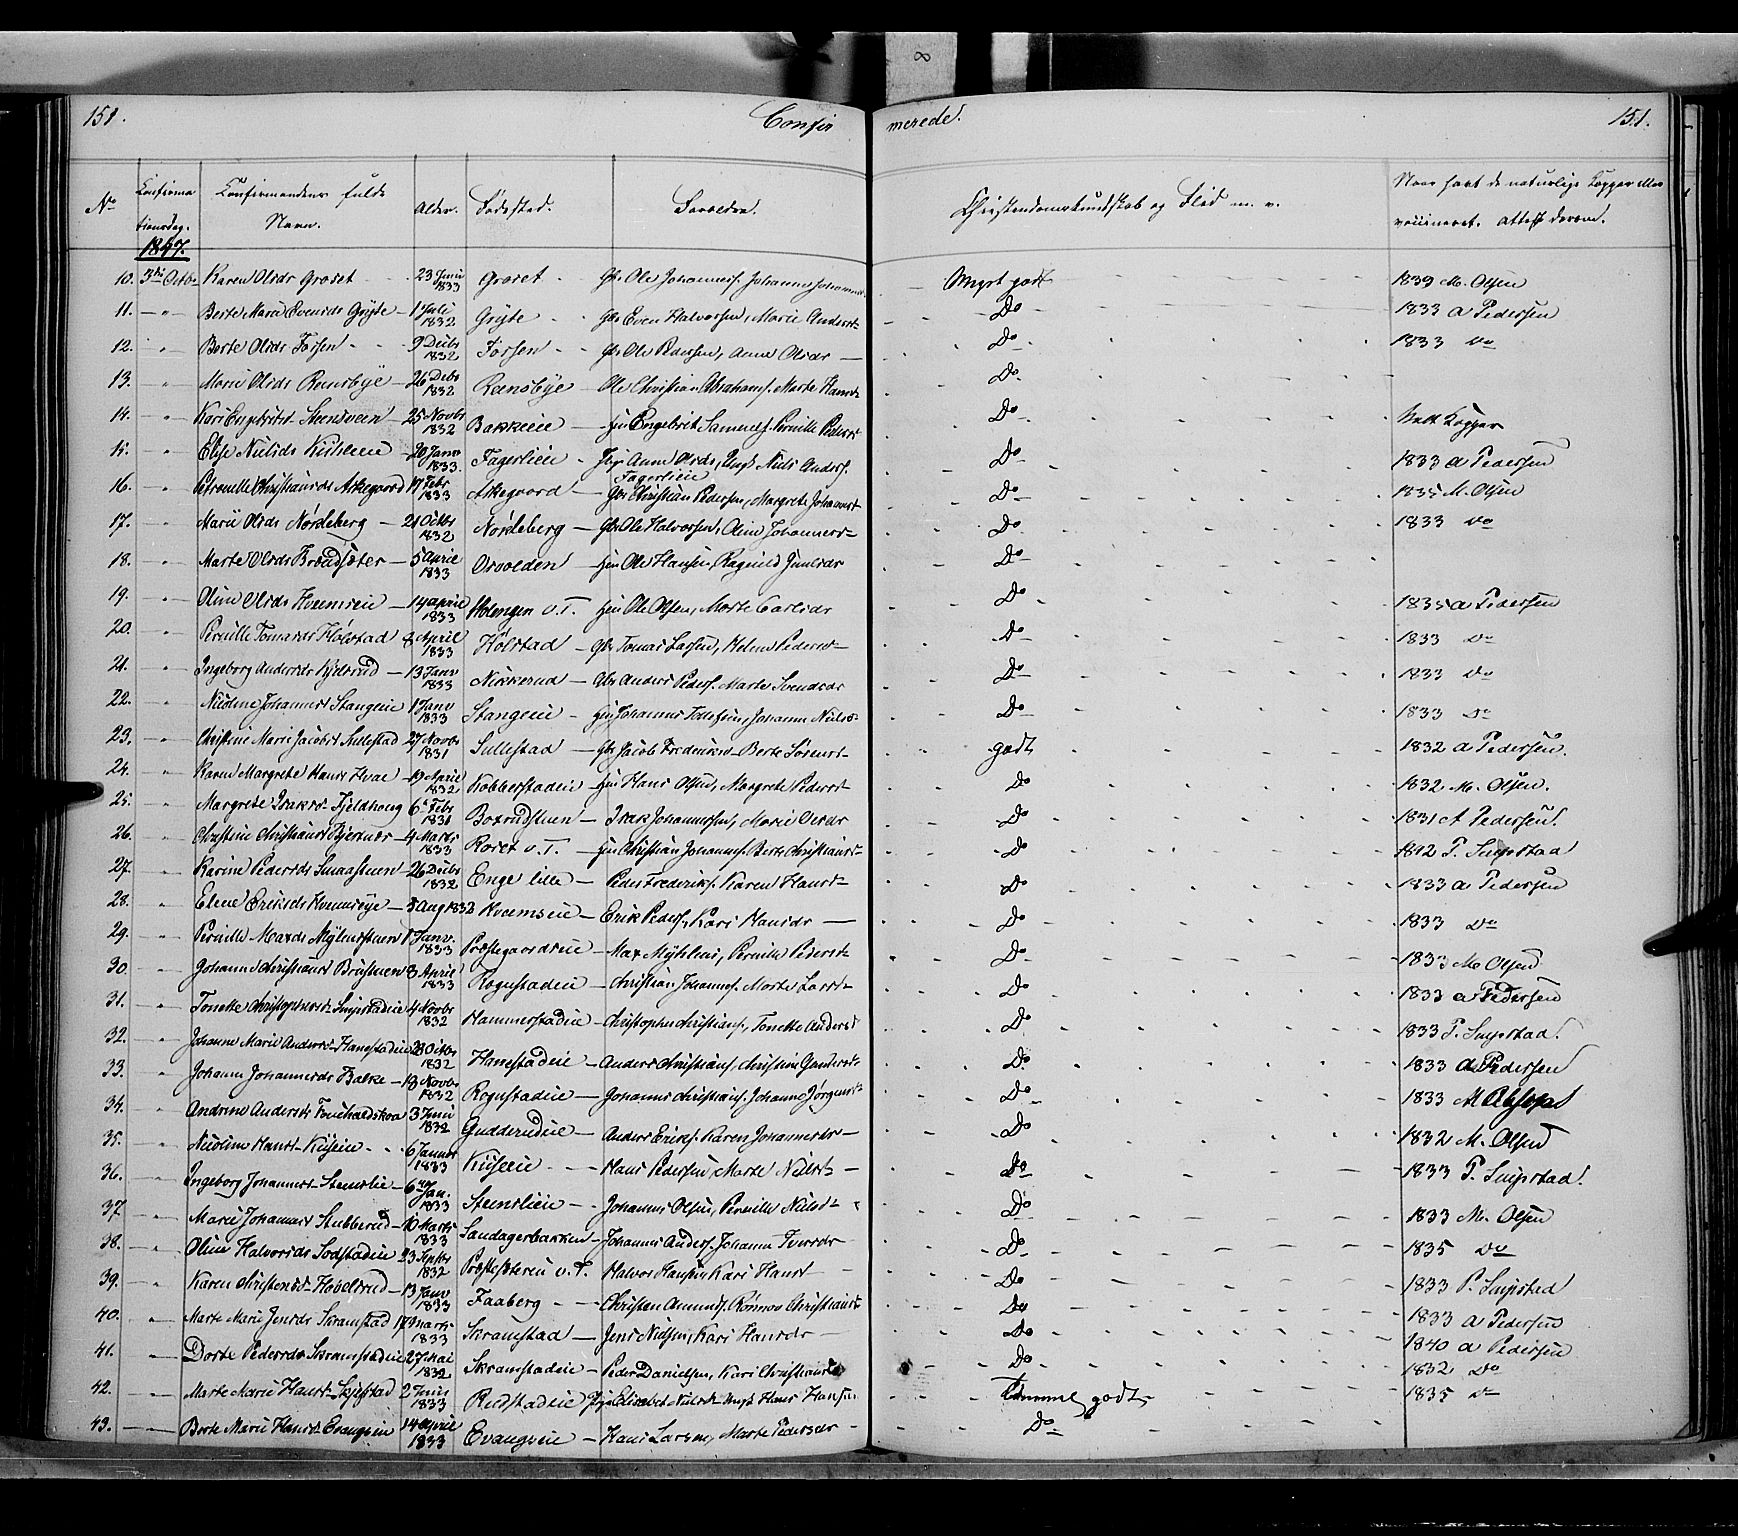 151. Confir merede. 151.
No Confirmationsdag. Confirmandens fulde Navn. Alder. Fødested. Forældre. Christendomskundskab og Flid m. v. Naar havt de naturlige Kopper eller vaccineret. Attest derom.
1847.
10. 3die Octbr Karen Olsdr Graset 23 Juni 1833 Graset Gbr Ole Johanness. Johanne Meget godt 1839 M. Olsen
11. — " — Berte Marie Evensdr Gryte 1 Juli 1832 Gryte Gbr Even Halvorsen, Marie Andersdr Do 1833 A Pedersen
12. " Berte Olsdr Forsen 9 Decbr 1832 Forsen Gbr Ole Pedersen, Anne Olsdr Do 1833 Do
13. " Marie Olsdr Rensbye 26 Decbr 1832 Rensbye Ole Christian Abrahams. Marte Do
14. " Kari Engebretsd Steensveen 25 Novbr 1832 Bakkeeie Hm Engebret Samuels. Pernille Pedersd Do havt Kopper
15. " Elise Nielsdr 20 Janr 1833 Fagerlien Pige Anne Olsdr, Ungk Niels Anders. Fagerlien Do 1833 A Pedersen
16. " Petronelle Christiansdr Askegaard 17 Febr 1833 Askegaard Gbr Christian Pedersen, Margrete Johannesd Do 1835 M. Olsen
17. " Marie Olsdr Nordeberg 21 Octbr 1832 Nordeberg Gbr Ole Halvorsen, Oline Johannesd Do 1833 Do
18. " Marte Olsdr Brødsæter 5 April 1833 Hm Ole Hansen, Ragnild Do
19. " Oline Olsdr Kvemseie 14 April 1833 Holmgen v. T. Hm Ole Olsen, Marte Carlsdr Do 1835 A Pedersen
20. " Pernille Tomasdr Hølstad 8 April 1833 Hølstad Gbr Tomas Larsen, Helene Pedersd Do 1833 Do
21. " Ingeborg Andersdr 13 Janr 1833 Nikkerud Gbr Anders Peders. Marte Svendsdr Do 1833 Do
22. " Nicoline Johannesd Stangeie 1 Janr 1833 Stangeie Hm Johannes Tollefsen, Johanne Nielsd Do 1833 Do
23. " Christine Marie Jacobsd Sillestad 27 Novbr 1831 Sillestad Gbr Jacob Frederiks. Berte Sørensd godt 1832 A Pedersen.
24. " Karen Margrete Hansd 19 April 1832 Kobberstadeie Hm Hans Olsen, Margrete Pedersd Do 1832 M. Olsen.
25. " Margrete Isaksd Fjeldhoug 6 Febr 1831 Boxrudstuen Isak Johannessen, Marie Olsdr Do 1831 A Pedersen.
26. " Christine Christiansd Bjernær 4 Marts 1833 Roset v. T. Hm Christian Johannes. Berte Christiansd Do T. Snipstad
27. " Karine Pedersdr Smaastuen 26 Decbr 1832 Enge lille Peder Frederiks. Karen Hansd Do 1833 A Pedersen
28. " Elene Eriksdr 3 Aug 1832 Kvemseie Erik Peders. Kari Hansdr Do 1833 Do
29. " Pernille Maxdr Mylerstuen 1 Janr. 1833 Præstegaardseie Max Pernille Pedersd Do 1833 M. Olsen
30. " Johanne Christiansd Bristuen 3 April 1833 Rognstadeie Christian Johannes. Marte Larsd Do 1833 A Pedersen
31. " Tonette Christophersd Snipstadeie 4 Novbr 1832 Hammerstadeie Christopher Christians. Tonette Andersd Do 1833 T. Snipstad.
32. " Johanne Marie Andersd Hanestadeie 28 Octbr 1832 Hanestadeie Anders Christians, Christine Do 1833 A Pedersen
33. " Johanne Johannesdr Balke 13 Novbr 1832 Rognstadeie Johannes Christians. Johanne Jørgensd Do 1833 M
34. " Andrine Andersd 3 Juni 1832 Gudderudeie Anders Eriks. Karen Johannesdr Do 1832 M. Olsen
35. " Nicoline Hansd Kiseeie 6 Januar 1833 Kiseeie Hans Pedersen, Marte Nielsd Do 1833 T. Snipstad.
36. " Ingeborg Johannesd Steenslie 6 Jan. 1833 Steenslien Johannes Olsen, Pernille Nielsd Do 1833 M. Olsen
37. " Marie Johannesd Stubberud 10 Marts 1833 Sandagerbakken Johannes Anders. Johanne Iversdr Do 1835 Do
38. " Oline Halvorsdr 23 Septbr 1832 Præstesætereie v. T. Halvor Hansen, Kari Hansd Do 1833 P. Snipstad
39. " Karen Christensd Hovelsrud 13 Janr 1833 Faaberg Christen Amunds. Rønnov Christiansd Do 1833 A Pedersen
40. " Marte Marie Jensdr Skramstad 17 Marts 1833 Skramstad Jens Nielsen, Kari Hansdr Do 1840 A Pedersen
41. " Dorte Pedersdr Skramstadeie 27 Mai 1832 Skramstadeie Peder Danielsen, Kari Christiansd Do 1832 Do
42. " Marte Marie Hansd Skjefstad 2 Juni 1833 Rudstadeie Pige Elisabet Nielsd Ungk Hans Hansen Temmel. godt 1835 Do
43. " Berte Marie Hansd Evangseie 14 April 1833 Evangseie Hans Larsen, Marte Pedersdr Do